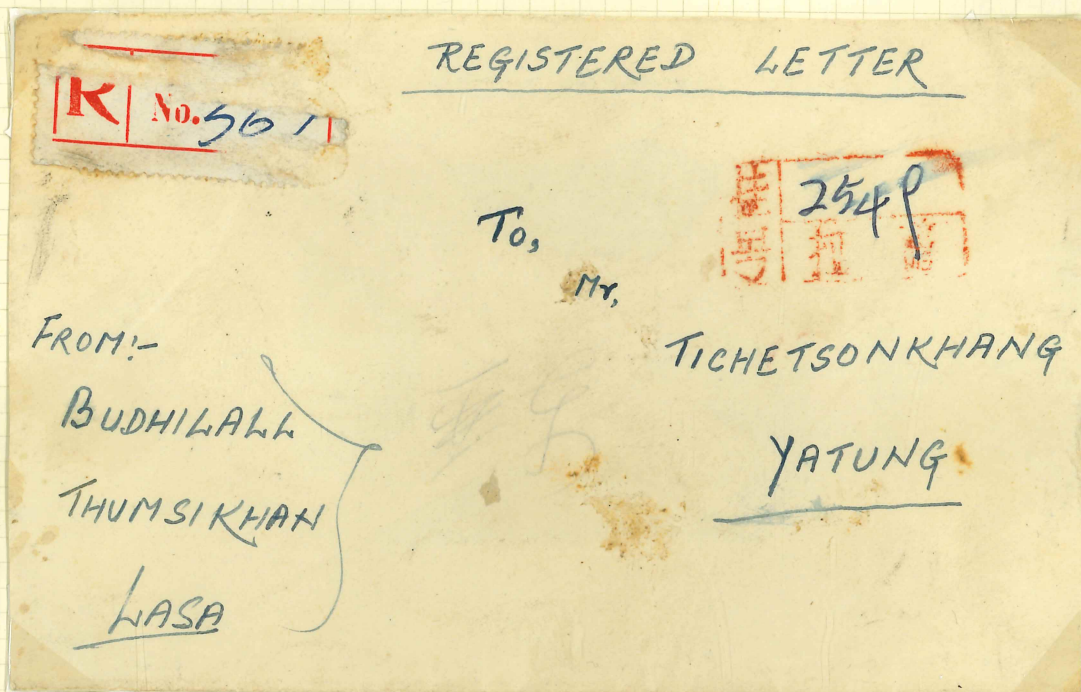 REGISTERED LETTER
R No. 561
2549
To,
Mr,
TICHETSONKHANG
YATUNG
FROM:-
BUDHILALL
THUMSIKHAN
LASA